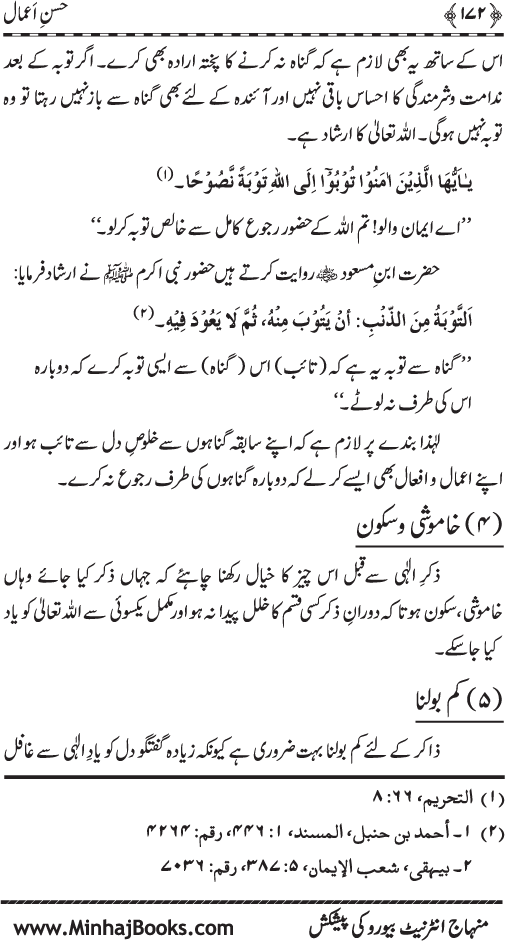 ﴿۱۷۲﴾ حسنِ اَعمال
اس کے ساتھ یہ بھی لازم ہے کہ گناہ نہ کرنے کا پختہ ارادہ بھی کرے۔ اگر توبہ کے بعد
ندامت وشرمندگی کا احساس باقی نہیں اور آئندہ کے لئے بھی گناہ سے باز نہیں رہتا تو وہ
توبہ نہیں ہوگی۔ اللہ تعالیٰ کا ارشاد ہے۔
يٰـاَيُّهَا الَّذِيْنَ اٰمَنُوْا تُوْبُوْٓا اِلَى اللهِ تَوْبَةً نَّصُوْحًا۔(۱)
’’اے ایمان والو! تم اللہ کے حضور رجوعِ کامل سے خالص توبہ کرلو۔‘‘
حضرت ابنِ مسعود ؓ روایت کرتے ہیں حضور نبی اکرم ﷺ نے ارشاد فرمایا:
اَلتَّوْبَةُ مِنَ الذَّنْبِ: أَنْ يَتُوْبَ مِنْهُ، ثُمَّ لَا يَعُوْدَ فِيْهِ۔(۲)
’’گناہ سے توبہ یہ ہے کہ (تائب) اس (گناہ) سے ایسی توبہ کرے کہ دوبارہ
اس کی طرف نہ لوٹے۔‘‘
لہٰذا بندے پر لازم ہے کہ اپنے سابقہ گناہوں سے خلوصِ دل سے تائب ہو اور
اپنے اعمال و افعال بھی ایسے کر لے کہ دوبارہ گناہوں کی طرف رجوع نہ کرے۔
(۴) خاموشی وسکون
ذکرِ الٰہی سے قبل اس چیز کا خیال رکھنا چاہئے کہ جہاں ذکر کیا جائے وہاں
خاموشی، سکون ہو تاکہ دورانِ ذکر کسی قسم کا خلل پیدا نہ ہو اور مکمل یکسوئی سے اللہ تعالیٰ کو یاد
کیا جاسکے۔
(۵) کم بولنا
ذاکر کے لئے کم بولنا بہت ضروری ہے کیونکہ زیادہ گفتگو دل کو یادِ الٰہی سے غافل
(۱) التحریم، ۶۶: ۸
(۲) ۱۔ أحمد بن حنبل، المسند، ۱: ۴۴۶، رقم: ۴۲۶۴
۲۔ بیہقی، شعب الإیمان، ۵: ۳۸۷، رقم: ۷۰۳۶
منہاج انٹرنیٹ بیورو کی پیشکش www.MinhajBooks.com